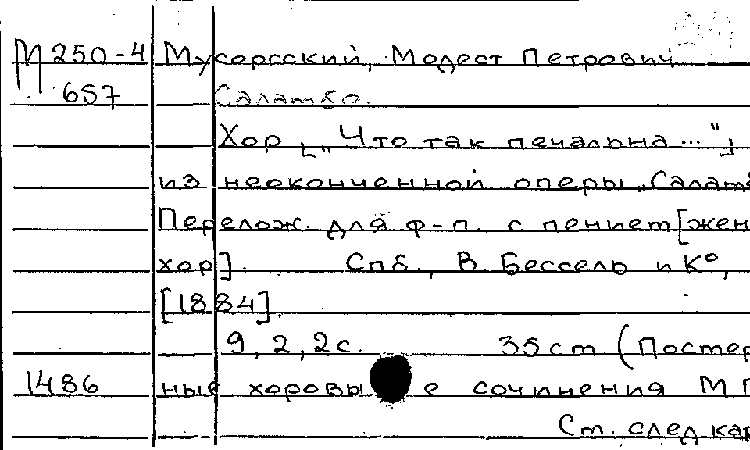 М 250-4 Мусоргский, Модест Петрович
657 Саламбо.
Хор [„Что так печальна..."]
из неоконченной оперы „Саламб
Перелож. для ф-п. с пением [жен
хор]. Спб., В. Бессель и К°,
[1884]
9, 2, 2 с. 35 cm (Постер
1486 ные хоровы е сочинения М П
См. след кар